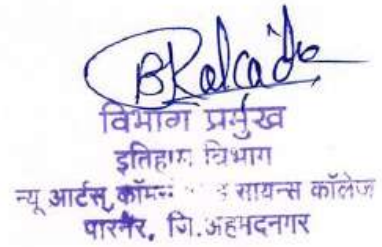 विभाग प्रमुख
इतिहास विभाग
न्यू आर्टस्, कॉमर्स सायन्स कॉलेज
पारनेर, जि.अहमदनगर